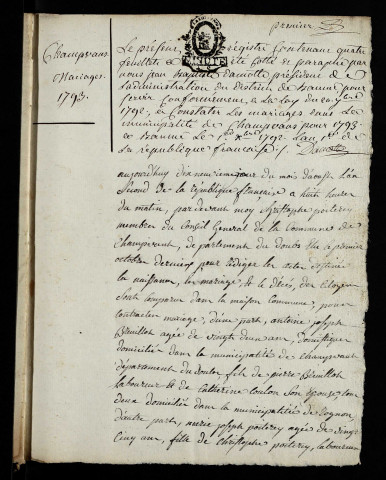 premier
Champvans
Mariages.
1793.
Le présent registre contenant quatre
feuillets a été cotté et paraphé par
nous jean baptiste Damotte président de
l'administration du District de Baume pour
servir conformément à la Loy du
1792, a Constater les mariages dans la
municipalité de Champvans pour 1793
a Baume le 1792 L'an 1er de
La république francoise
aujourdhuy dix neuvieme jour du mois L'an
second de La république française a huit heures
du matin, pardevant moy Xristophe poiterey
membre du Conseil General de la Commune de
Champvans, département du doubs élu le premier
octobre dernier pour rédiger les actes
la naissance, les mariages et le décès, des Citoyens
sont comparu dans la maison Commune, pour
contracter mariage; d'une part, antoine joseph
agée de vingt deux ans, domestique
domicilié dans la municipalité de champvans
département du doubs fils de pierre
laboureur et de Catherine son épouse tous
deux domiciliés dans la municipalité de
d'autre part, marie joseph poiterey agée de vingt
cinq ans, fille de Christophe poiterey, laboureur